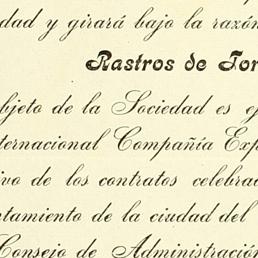 dad y girará bajo la razón
Rastros de Tor
bjeto de la Sociedad es ej
ternacional Compañía Exp
ivo de los contratos celebrad
ntamiento de la ciudad del
Consejo de Administración